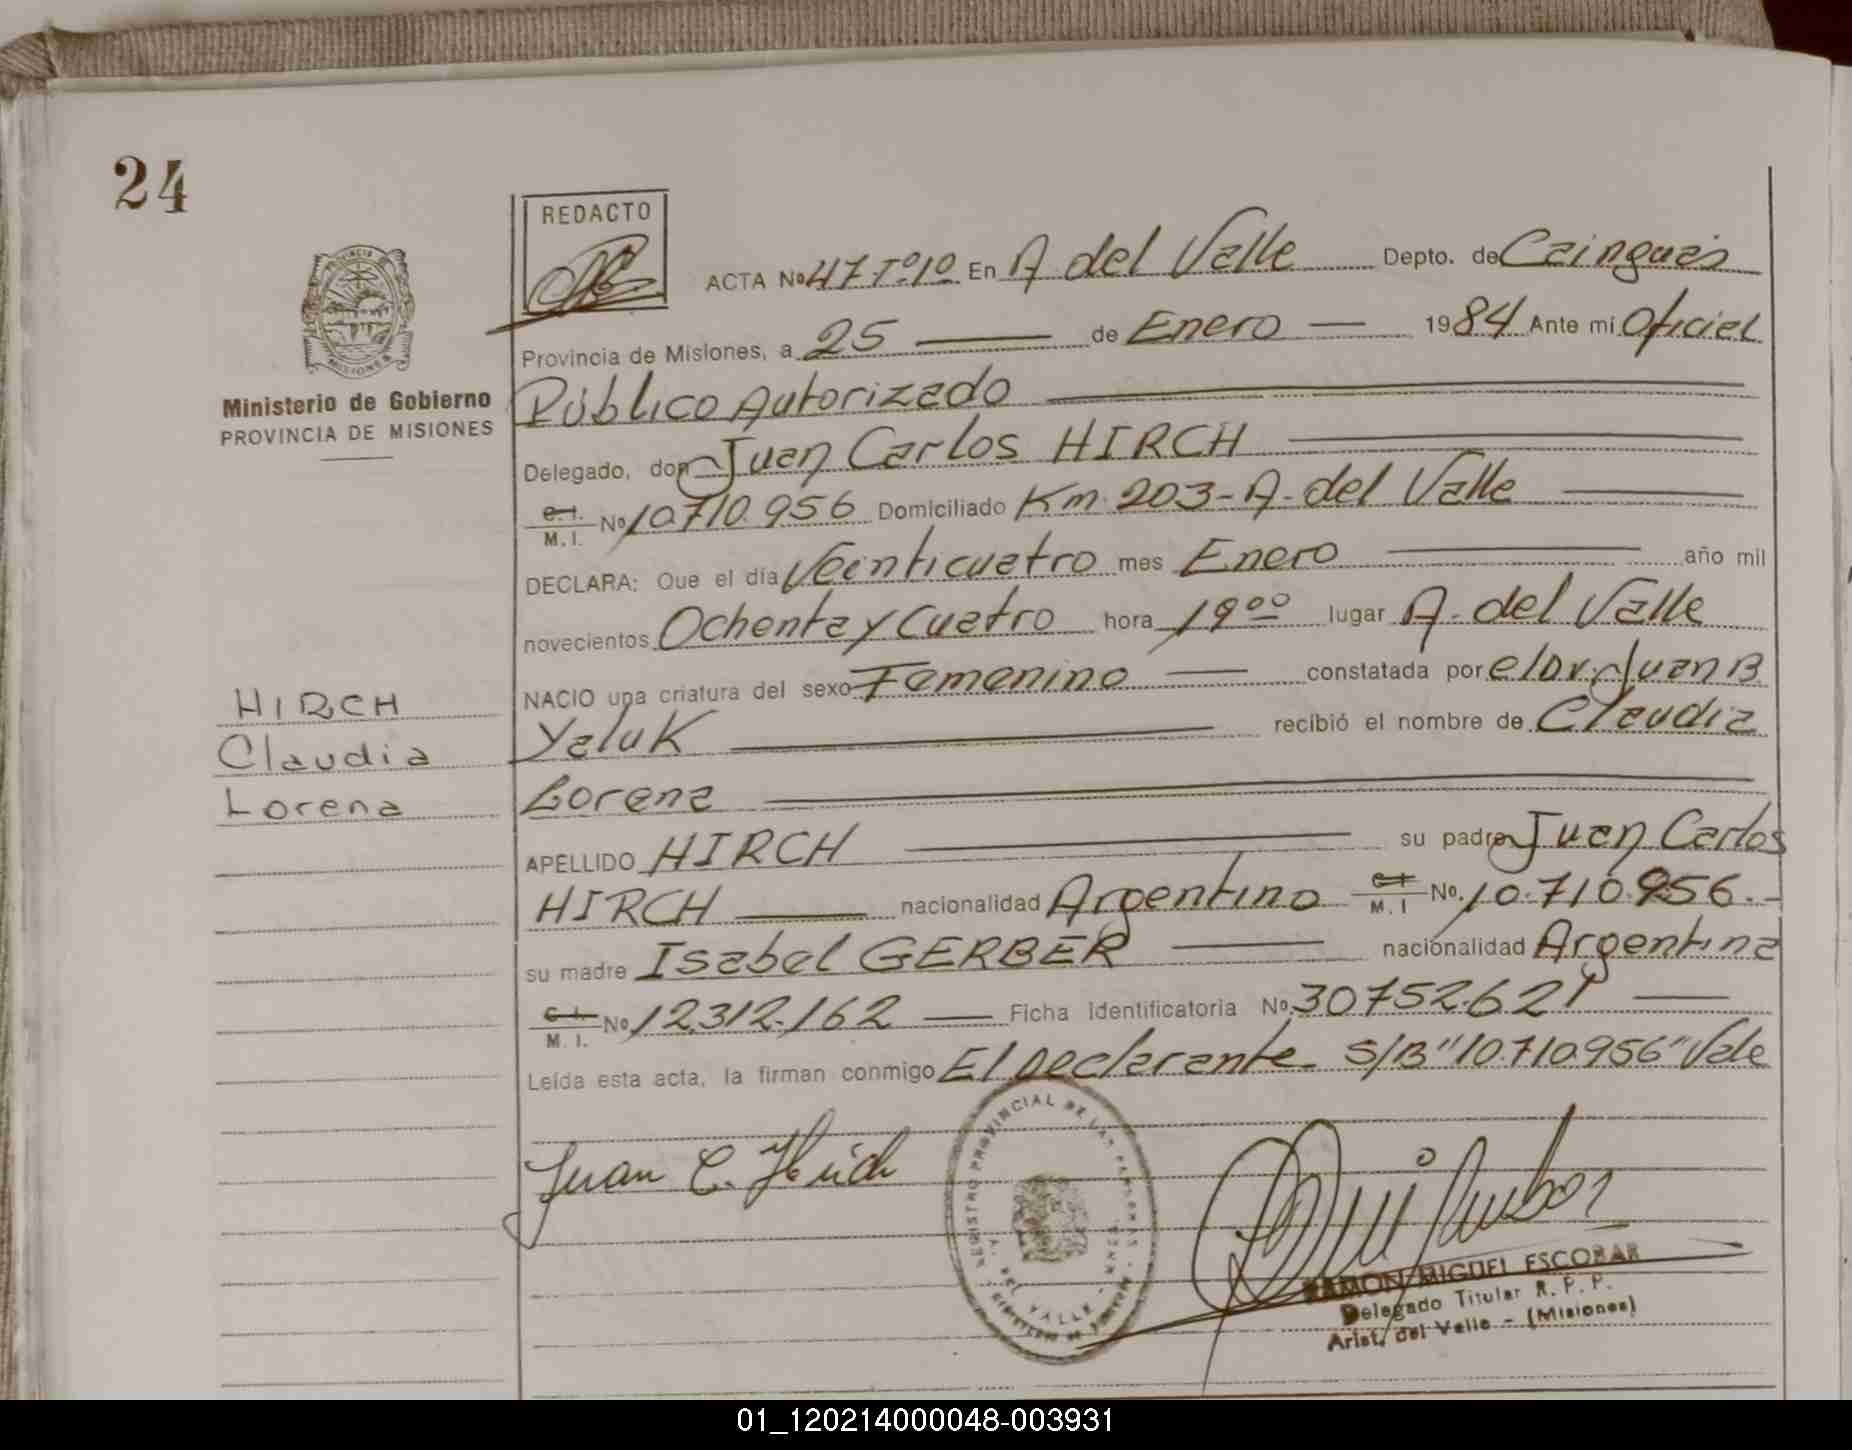 24
REDACTO
ACTA Nº 47 Tº1º En A del Valle Depto. de Cainguás
Provincia de Misiones, a 25 de Enero 1984 Ante mí Oficial
Ministerio de Gobierno
PROVINCIA DE MISIONES
Público Autorizado
Delegado, don Juan Carlos HIRCH
C.I. M.I. Nº 10.710.956 Domiciliado Km. 203-A. del Valle
DECLARA: Que el día Veinticuatro mes Enero año mil
novecientos Ochenta y Cuatro hora 19ºº lugar A. del Valle
NACIO una criatura del sexo Femenino constatada por el Dr. Juan B.
Yaluk recibió el nombre de Claudia
Lorena
HIRCH
Claudia
Lorena
APELLIDO HIRCH su padre Juan Carlos
HIRCH nacionalidad Argentino C.I. M.I Nº. 10.710.956.-
su madre Isabel GERBER nacionalidad Argentina
C.I. M.I. Nº 12.312.162 Ficha Identificatoria Nº 30752.621
Leída esta acta, la firman conmigo El Declarante. S/B "10.710.956" Vale
Juan C. Hirch
REGISTRO PROVINCIAL DE LAS PERSONAS
A. DEL VALLE
RAMON MIGUEL ESCOBAR
Delegado Titular R. P. P.
Arist. del Valle - (Misiones)
01_120214000048-003931